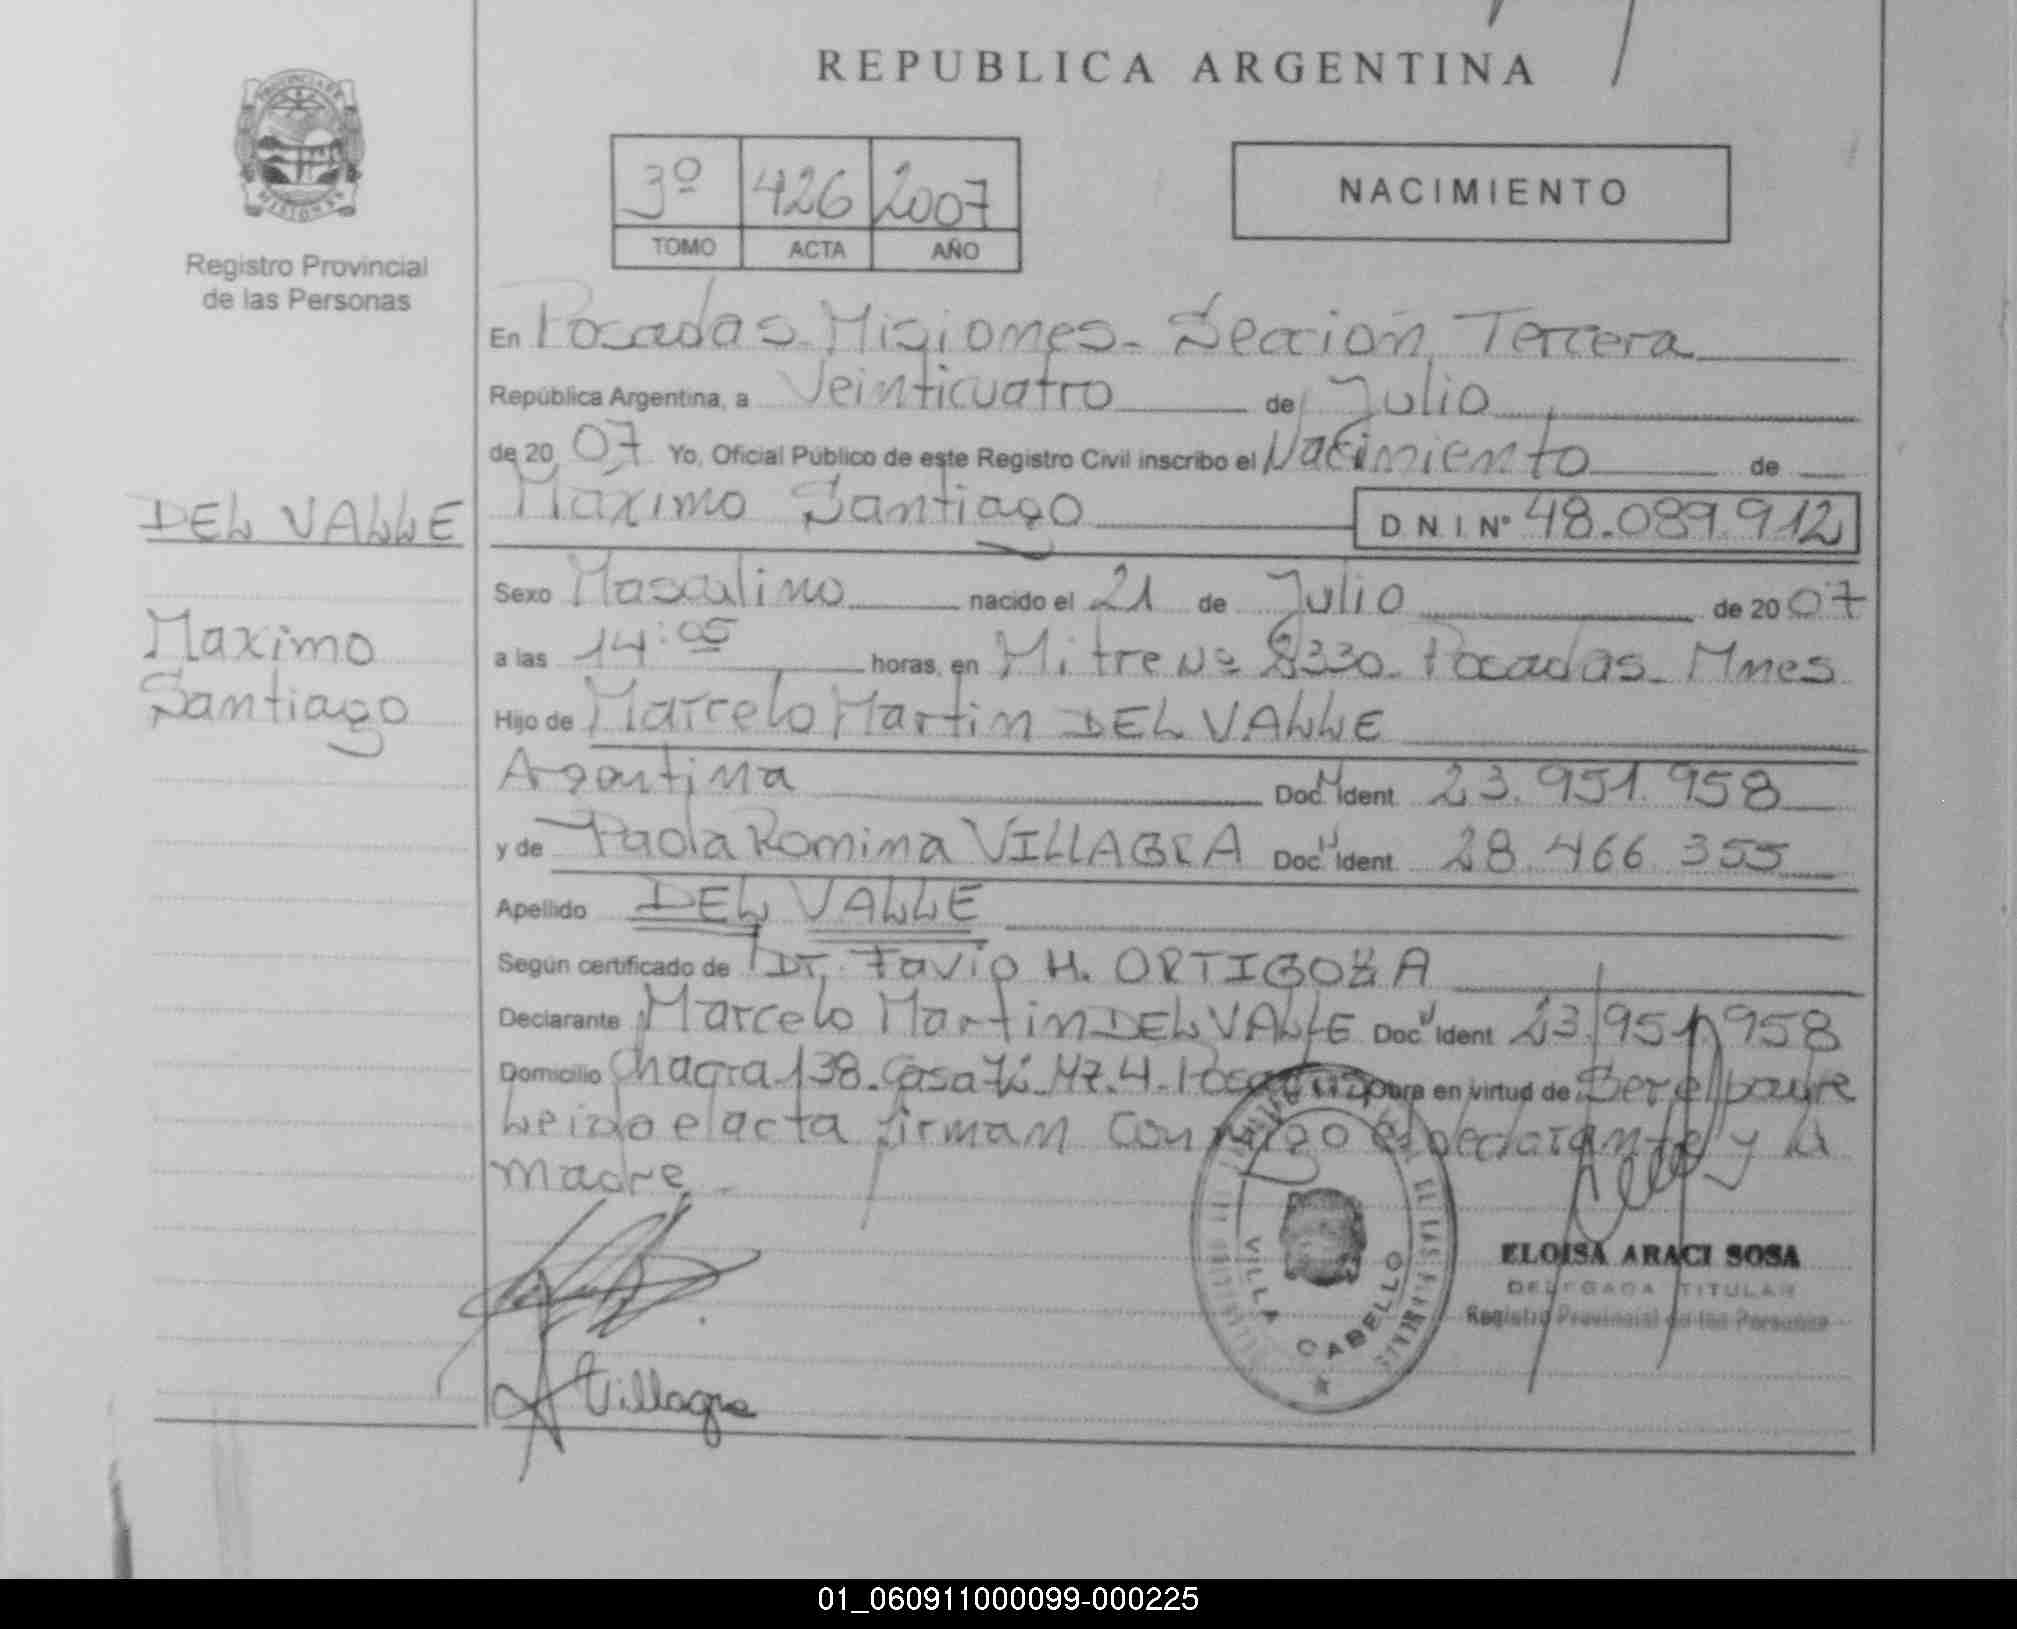 REPUBLICA ARGENTINA
PROVINCIA DE
MISIONES
Registro Provincial
de las Personas
3º 426 2007
TOMO ACTA AÑO
NACIMIENTO
En Posadas Misiones - Sección Tercera
República Argentina, a Veinticuatro de Julio
de 2007 Yo, Oficial Público de este Registro Civil inscribo el Nacimiento de
DEL VALLE
Máximo Santiago D.N.I. Nº 48.089.912
Sexo Masculino nacido el 21 de Julio de 2007
Maximo
Santiago
a las 14:05 horas, en Mitre Nº 2330. Posadas - Mnes
Hijo de Marcelo Martin DEL VALLE
Argentina Doc. Ident. 23.951.958
y de Paola Romina VILLAGRA Doc. Ident. 28.466.355
Apellido DEL VALLE
Según certificado de Dr. Favio H. ORTIGOZA
Declarante Marcelo Martin DEL VALLE Doc. Ident 23.951.958
Domicilio Chacra 138. Casa Mz. 4. Posadas Obra en virtud de Ser el padre
Leido el acta firman Conmigo el Declarante y la
madre.
VILLA CABELLO
ELOISA ARACI SOSA
DELEGADA TITULAR
Registro Provincial de las Personas
Villagra
01_060911000099-000225